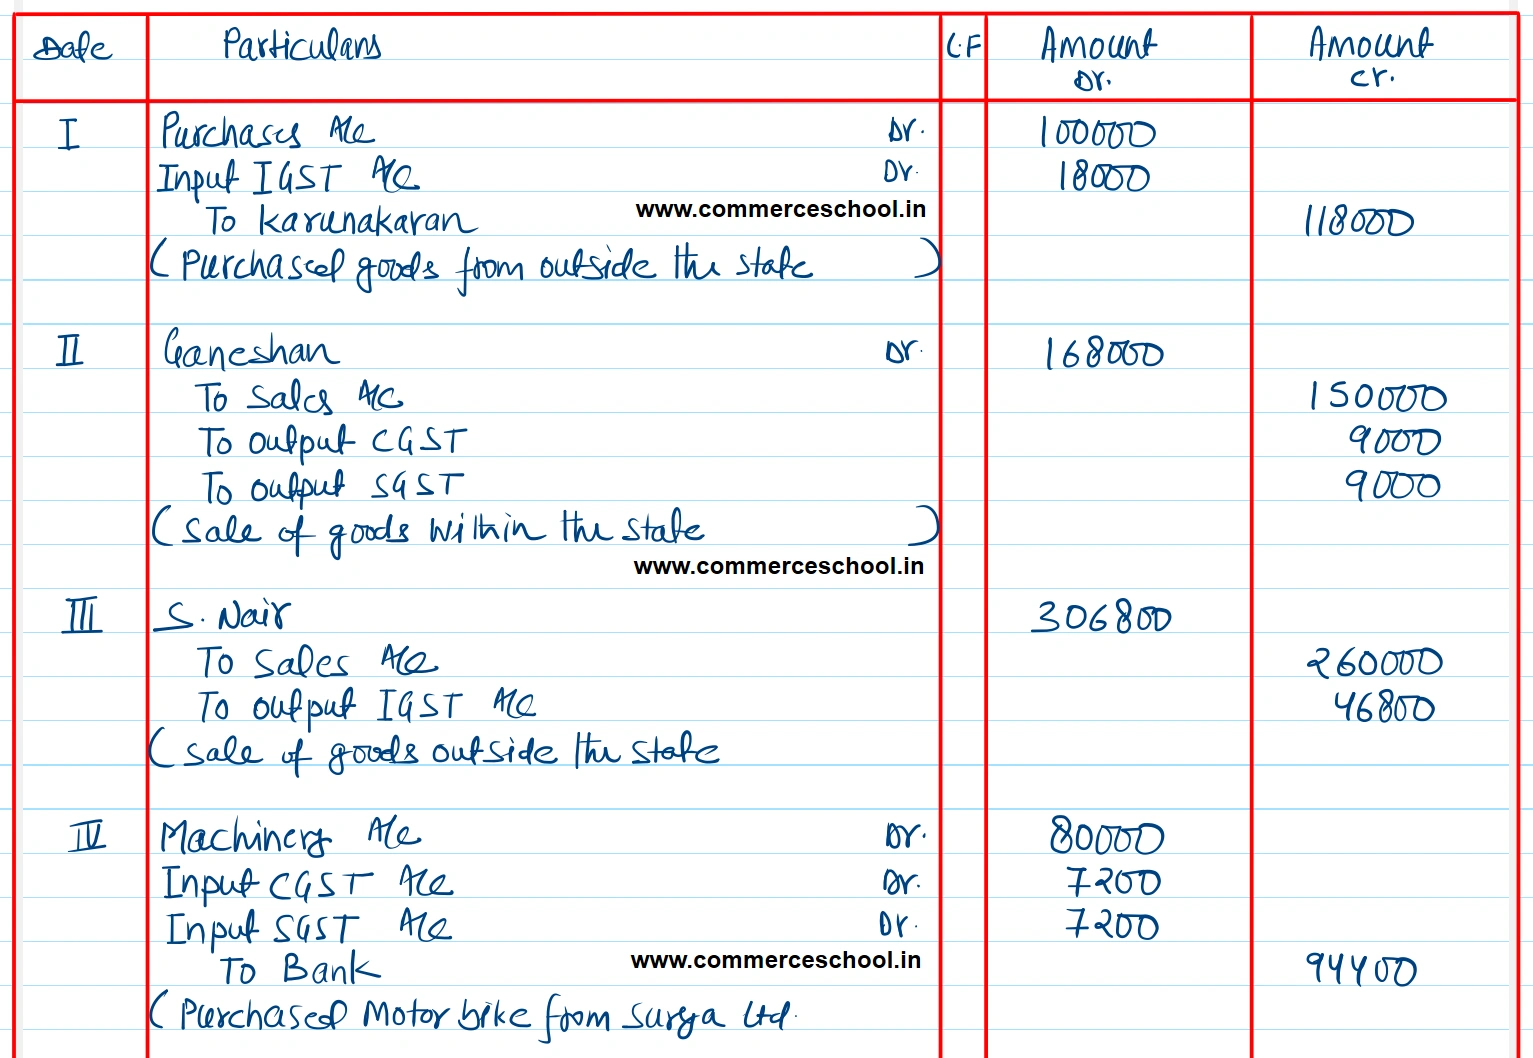 Date Particulars L.F Amount Dr. Amount Cr.
I Purchases A/c Dr. 100000
Input IGST A/c Dr. 18000
To Karunakaran 118000
www.commerceschool.in
(Purchased goods from outside the state)
II Ganeshan Dr. 168000
To Sales A/c 150000
To output CGST 9000
To output SGST 9000
(Sale of goods within the state)
www.commerceschool.in
III S. Nair 306800
To Sales A/c 260000
To output IGST A/c 46800
(Sale of goods outside the state
IV Machinery A/c Dr. 80000
Input CGST A/c Dr. 7200
Input SGST A/c Dr. 7200
To Bank 94400
www.commerceschool.in
(Purchased Motor bike from Surya Ltd.